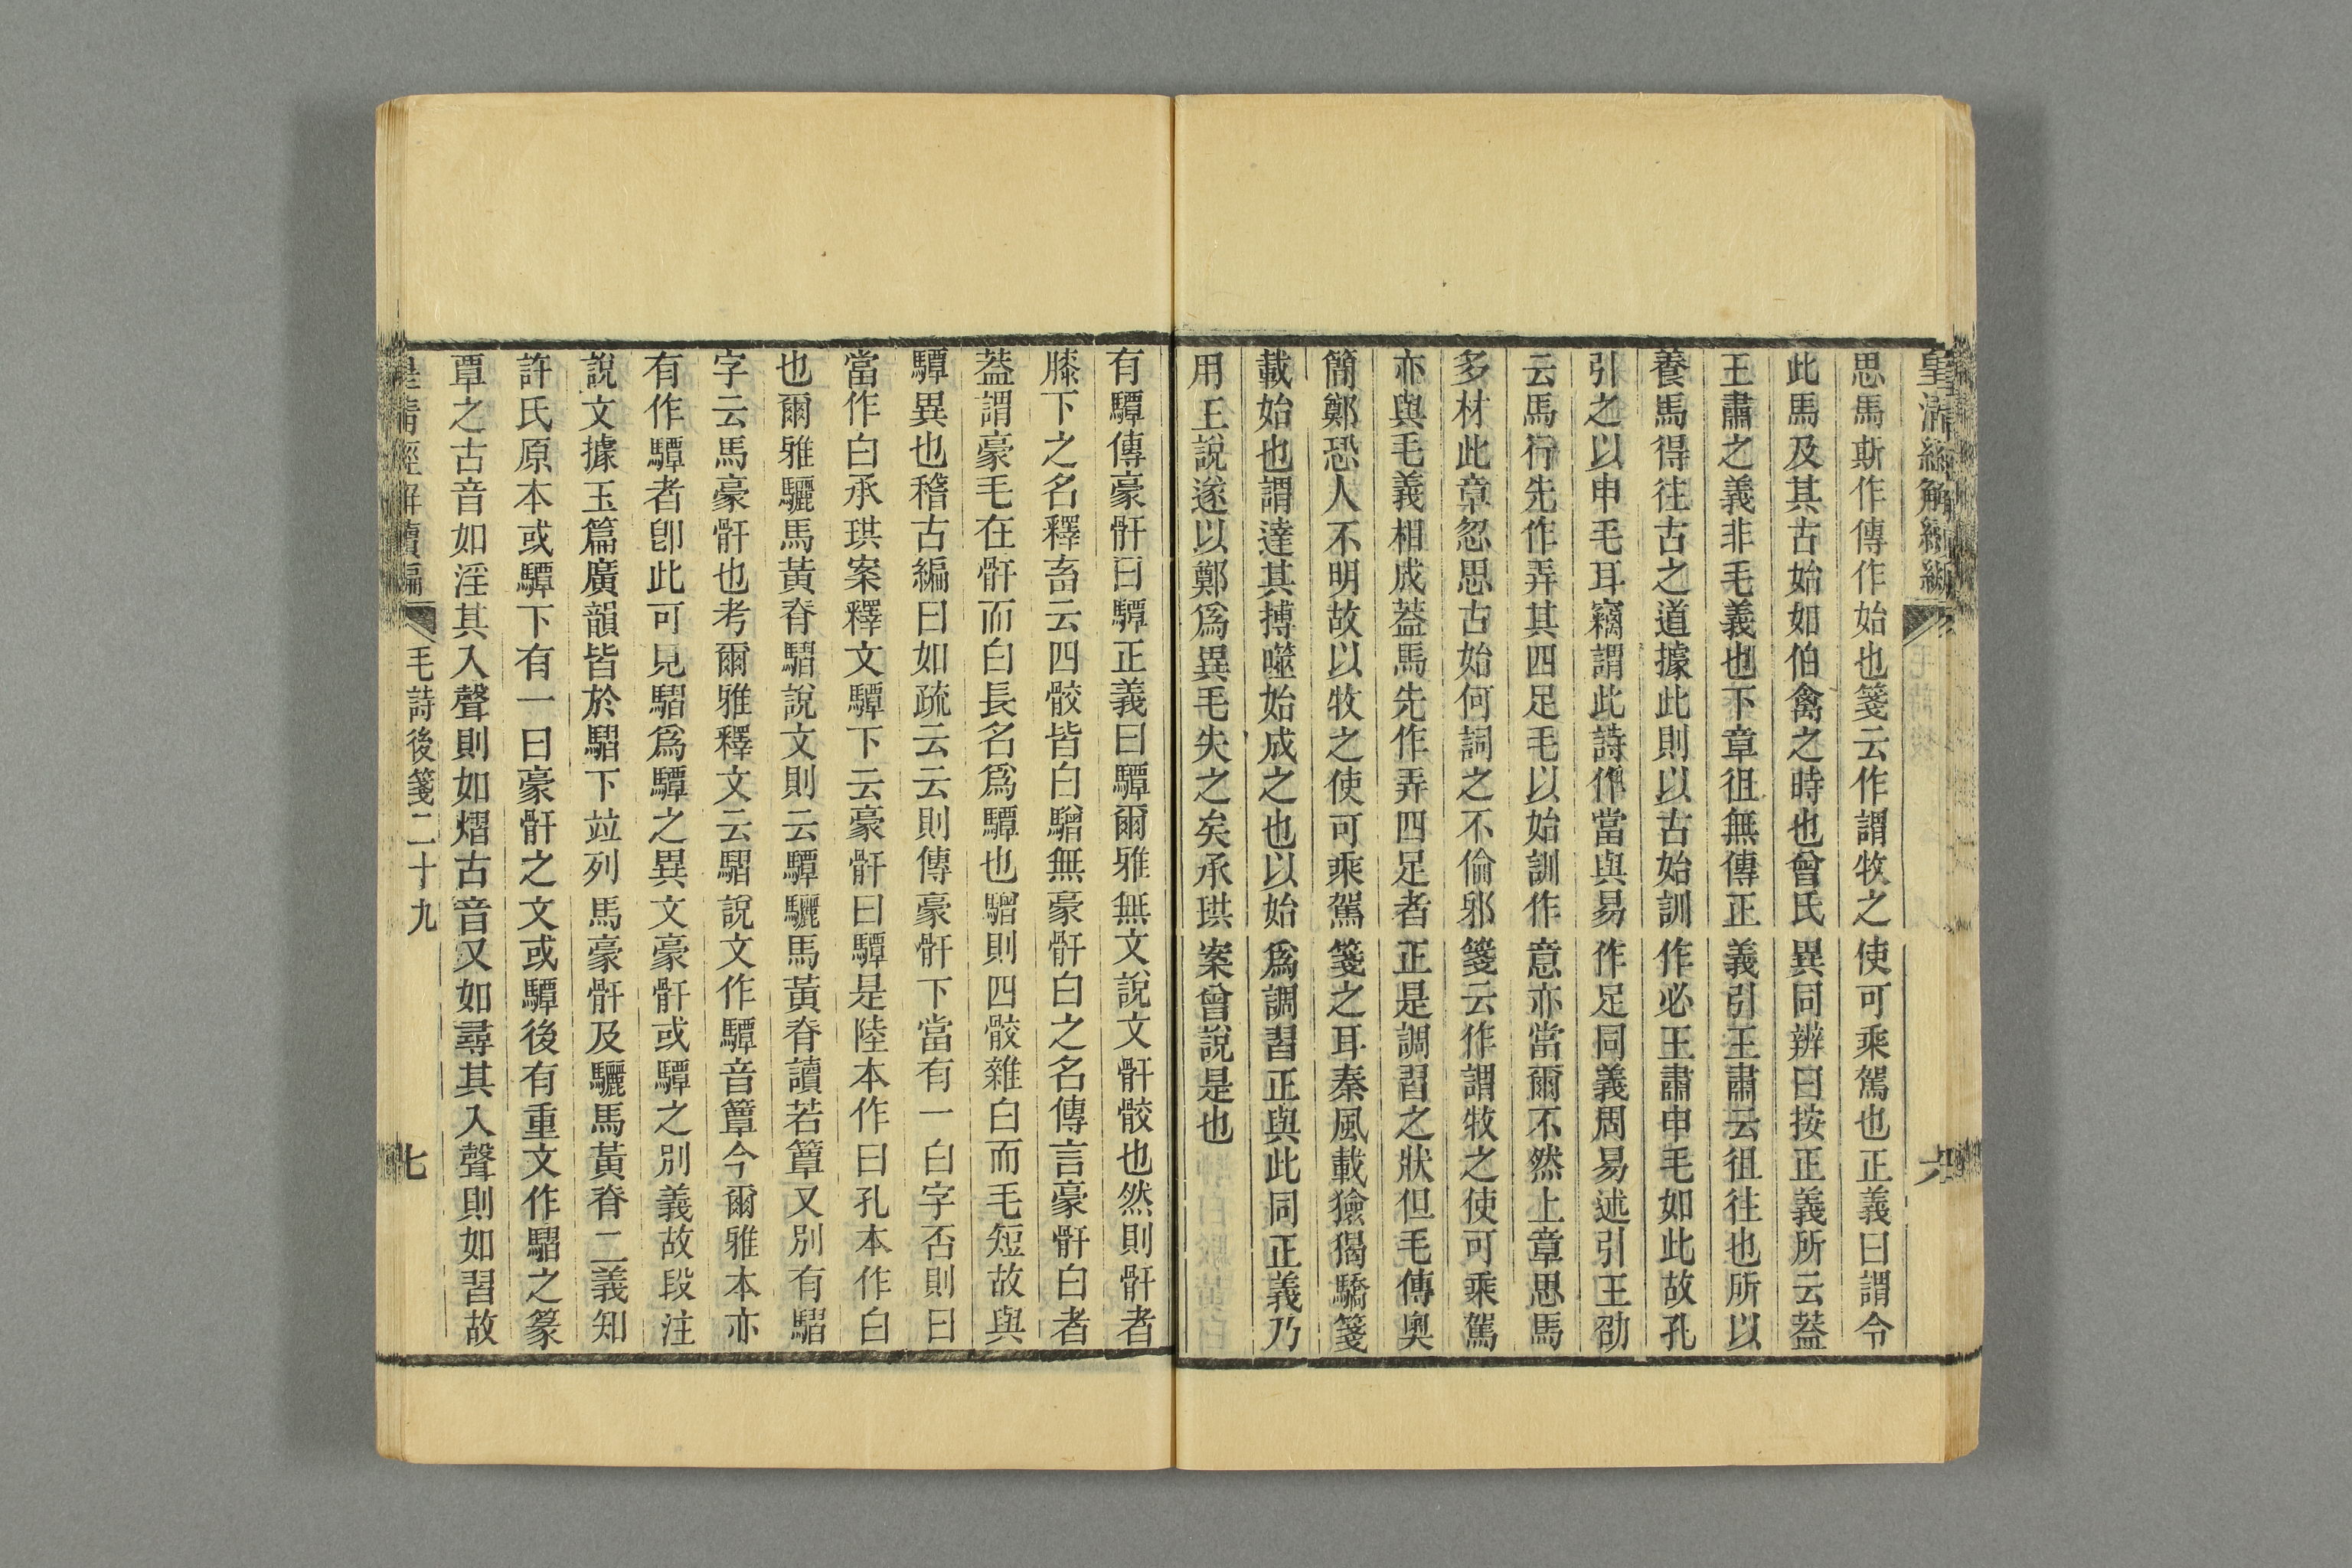 皇清經解續編
六
思馬斯作傳作始也箋云作謂牧之使可乘駕也正義曰謂令
此馬及其古始如伯禽之時也曾氏異同辨曰按正義所云葢
王肅之義非毛義也下章徂無傳正義引王肅云徂往也所以
養馬得往古之道據此則以古始訓作必王肅申毛如此故孔
引之以申毛耳竊謂此詩作當與易作足同義周易述引王劭
云馬行先作弄其四足毛以始訓作意亦當爾不然上章思馬
多材此章忽思古始何詞之不倫邪箋云作謂牧之使可乘駕
亦與毛義相成葢馬先作弄四足者正是調習之狀但毛傳奧
簡鄭恐人不明故以牧之使可乘駕箋之耳秦風載獫猲驕箋
載始也謂達其搏噬始成之也以始爲調習正與此同正義乃
用王說遂以鄭爲異毛失之矣承珙案曾說是也
有驔傳豪骭曰驔正義曰驔爾雅無文說文骭骹也然則骭者
膝下之名釋畜云四骹皆白驓無豪骭白之名傳言豪骭白者
葢謂豪毛在骭而白長名爲驔也驓則四骹雜白而毛短故與
驔異也稽古編曰如疏云云則傳豪骭下當有一白字否則曰
當作白承珙案釋文驔下云豪骭曰驔是陸本作曰孔本作白
也爾雅驪馬黃脊騽說文則云驔驪馬黃脊讀若簟又別有騽
字云馬豪骭也考爾雅釋文云騽說文作驔音簟今爾雅本亦
有作驔者卽此可見騽爲驔之異文豪骭或驔之別義故段注
說文據玉篇廣韻皆於騽下竝列馬豪骭及驪馬黃脊二義知
許氏原本或驔下有一曰豪骭之文或驔後有重文作騽之篆
覃之古音如淫其入聲則如熠古音又如尋其入聲則如習故
皇清經解續編
毛詩後箋二十九
七